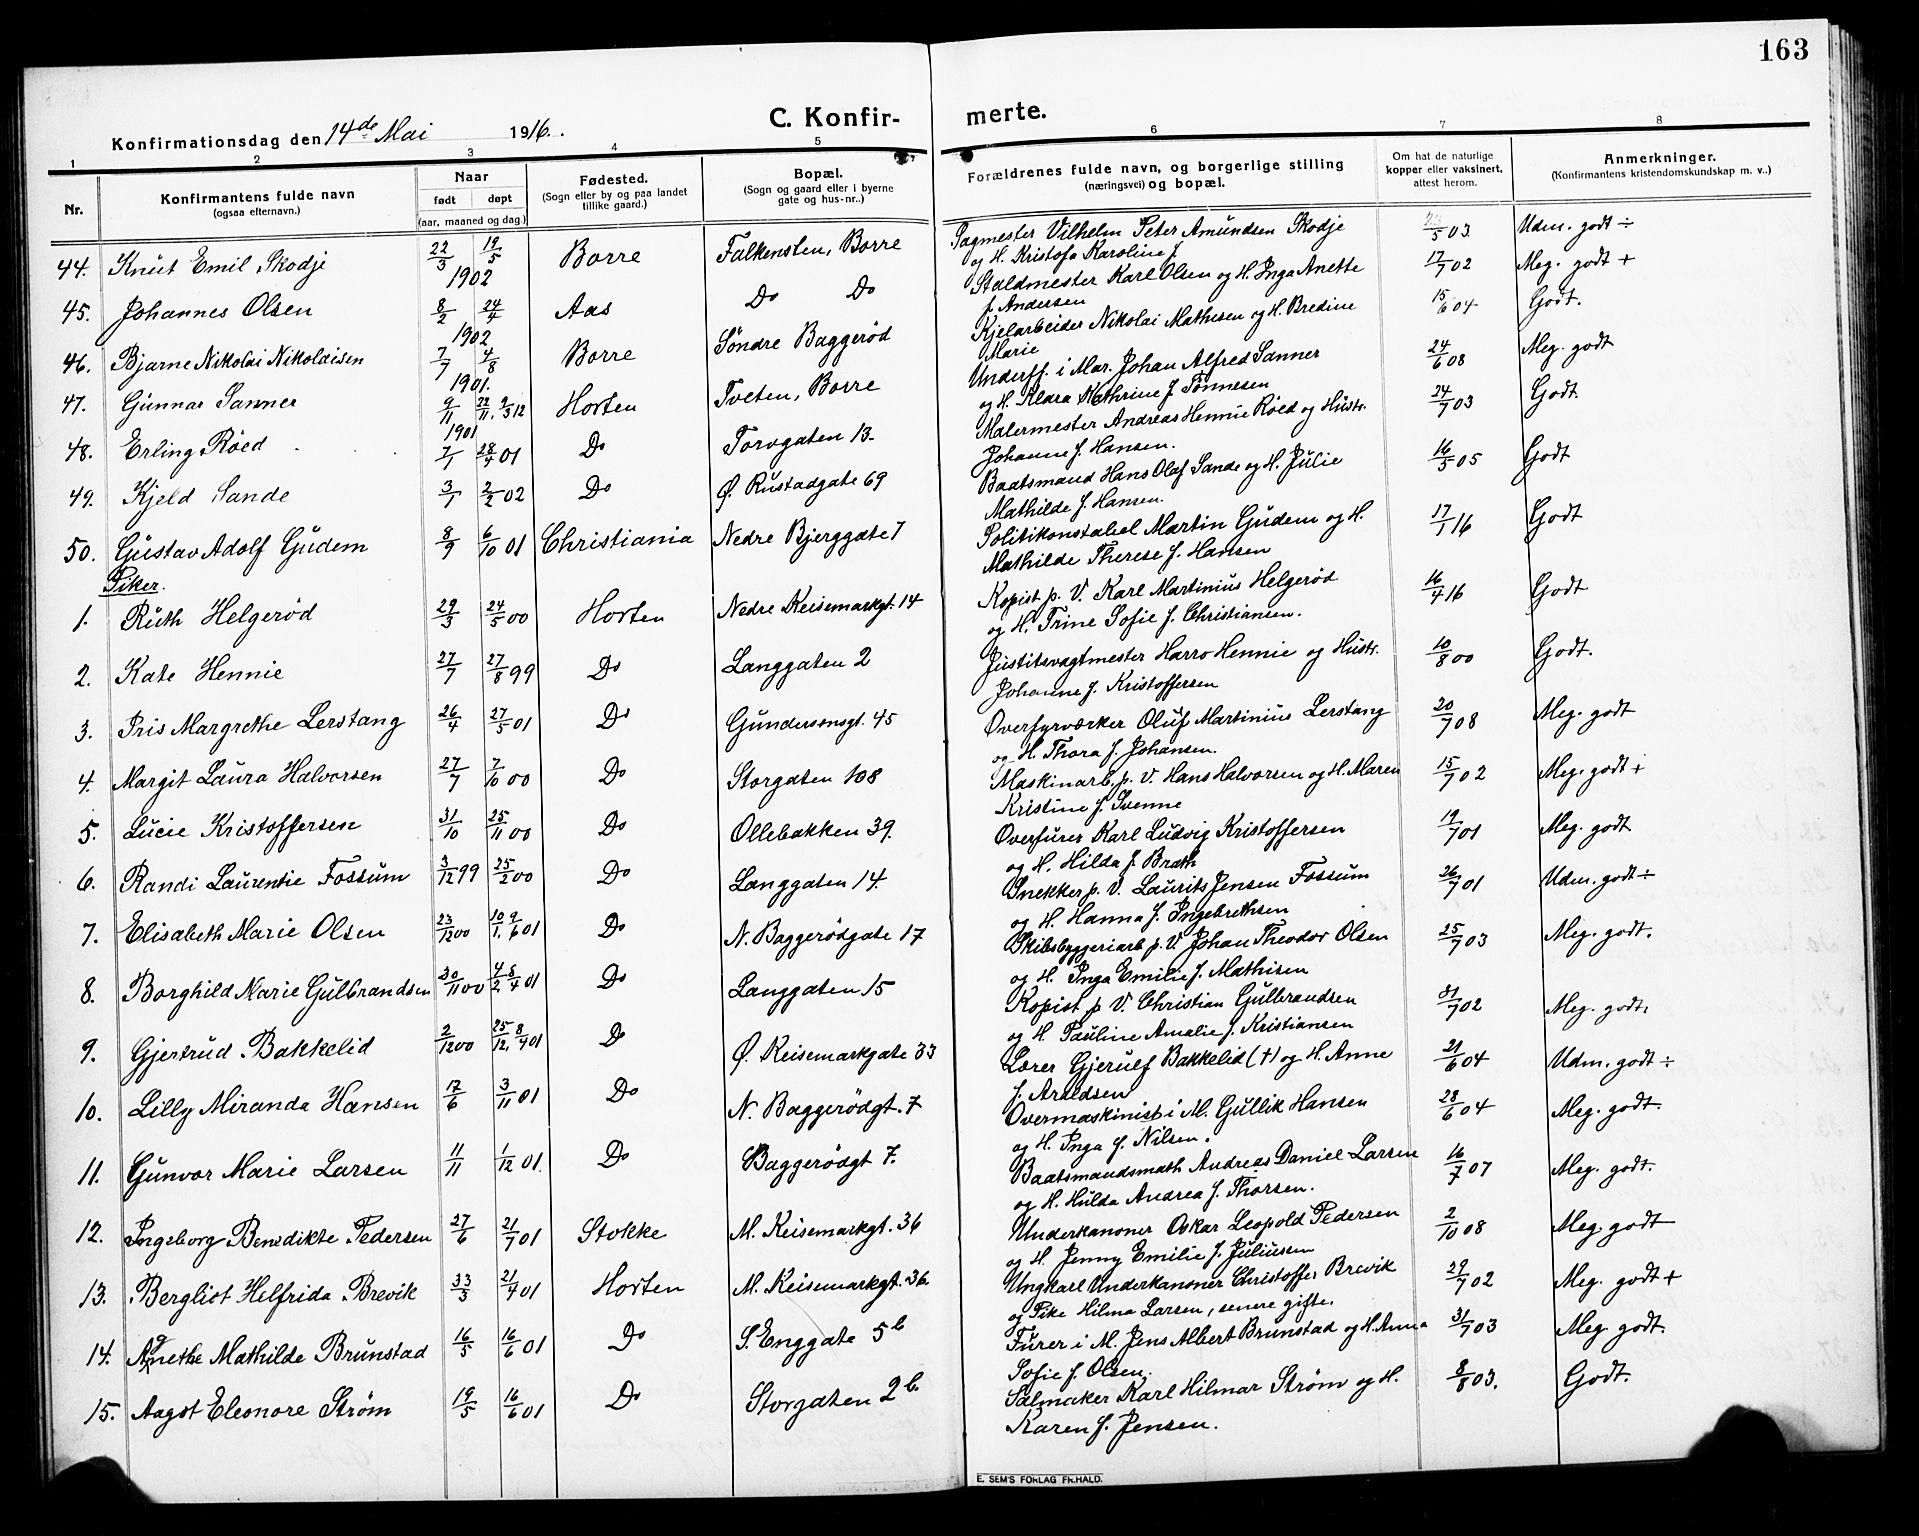 163
Konfirmationsdag den 14de Mai 1916.
C. Konfirmerte.
1 2 3 4 5 6 7 8
Nr.
Konfirmantens fulde navn
(ogsaa efternavn.)
Naar
født døpt
(aar, maaned og dag.)
Fødested.
(Sogn eller by og paa landet
tillike gaard.)
Bopæl.
(Sogn og gaard eller i byerne
gate og hus-nr..)
Forældrenes fulde navn, og borgerlige stilling
(næringsvei) og bopæl.
Om hat de naturlige
kopper eller vaksinert,
attest herom.
Anmerkninger.
(Konfirmantens kristendomskundskap m. v..)
44. Knut Emil Skodje 22/3 19/5 1902 Borre Falkensten, Borre Sagmester Vilhelm Peter Amundsen Skodje /5 03. Udm. godt ÷
og H. Kristofa Karoline J
45. Johannes Olsen 8/2 24/4 1902 Aas Do Do Staldmester Karl Olsen og H. Inga Anette 17/7 02 Meg. godt +
f. Andersen
46. Bjarne Nikolai Nikolaisen 7/7 4/8 1901. Borre Søndre Baggerød Kjelarbeider Nikolai Mathisen og H. Bredine 15/6 04 Godt.
Marie
47. Gunnar Sanner 9/11 22/11, 9/3 12 1901 Horten Tveten, Borre Underff. i Mar. Johan Alfred Sanner 24/6 08 Meg. godt
og H. Klara Kathrine f. Tønnesen
48. Erling Røed 7/1 28/4 01 Do Torvgaten 13. Malermester Andreas Hennie Røed og Hustr. 24/7 03 Godt.
Johanne f. Hansen.
49. Kjeld Sande 3/1 2/2 02 Do Ø. Rustadgate 69 Baatsmand Hans Olaf Sande og H. Julie 16/5 05 Godt
Mathilde f. Hansen.
50. Gustav Adolf Gudem 8/9 6/10 01 Christiania Nedre Bjerggate 7 Politikonstabel Martin Gudem og H. 17/1 16 Godt
Mathilde Therese f. Hansen
Piker.
1. Ruth Helgerød 29/3 24/5 00 Horten Nedre Keisemarkgt. 14 Kopist p. V. Karl Martinius Helgerød 16/4 16 Godt
og H. Trine Sofie f. Christiansen.
2. Kate Hennie 27/7 27/8 99 Do Langgaten 2 Justitsvagtmester Harro Hennie og Hustr. 10/8 00 Godt.
Johanne f. Kristoffersen
3. Iris Margrethe Lerstang 26/4 27/5 01 Do Gundersonsgt. 45 Overfyrværker Oluf Martinius Lerstang 20/7 08 Meg. godt
og H. Thora f. Johansen.
4. Margit Laura Halvorsen 27/7 7/10 00 Do Storgaten 108 Maskinarb. p. V. Hans Halvorsen og H. Maren 15/7 02 Meg. godt +
Kristine f. Svenne
5. Lucie Kristoffersen 31/10 25/11 00 Do Ollebakken 39. Overfurer Karl Ludvig Kristoffersen 19/7 01 Meg. godt
og H. Hilda f. Brath
6. Randi Laurentie Fossum 3/12 99 25/2 00 Do Langgaten 14. Snekker p. V. Laurits Jensen Fossum 26/7 01 Udm. godt ÷
og H. Hanna f. Ingebrethsen
7. Elisabeth Marie Olsen 23/12 00 10/1, 9/6 01 Do N. Baggerødgate 17 Skibsbyggeriarb p. V. Johan Theodor Olsen 25/7 03 Meg. godt.
og H. Inga Emilie f. Mathisen
8. Borghild Marie Gulbrandsen 30/11 00 4/2 8/4 01 Do Langgaten 15 Kopist p V. Christian Gulbrandsen 31/7 02 Meg. godt.
og H. Pauline Amalie f. Kristiansen
9. Gjertrud Bakkelid 2/12 00 25/12, 8/4 01 Do Ø. Keisemarkgate 33 Lærer Gjerulf Bakkelid (†) og H. Anne 21/6 04 Udm. godt ÷
f. Arildsen
10. Lilly Miranda Hansen 17/6 3/11 01 Do N. Baggerødgt. 7 Overmaskinist i M. Gullik Hansen 28/6 04 Meg. godt.
og H. Inga f. Nilsen.
11. Gunvor Marie Larsen 11/11 1/12 01. Do Baggerødgt 7. Baatsmandsmath Andreas Daniel Larsen 16/7 07 Meg. godt.
og H. Hulda Andrea f. Thorsen.
12. Ingeborg Benedikte Pedersen 27/6 21/7 01 Stokke M. Keisemarkgt. 36 Underkanoner Oskar Leopold Pedersen 2/10 08 Meg. godt
og H. Jenny Emilie f. Juliussen
13. Bergliot Helfrida Brevik 33/3 21/4 01 Horten M. Keisemarkgt. 36 Ungkarl Underkanoner Christoffer Brevik 29/7 02 Meg. godt +
og Pike Hilma Larsen, senere gifte.
14. Agnethe Mathilde Brunstad 16/5 16/6 01 Do S. Enggate 5b Furer i M. Jens Albert Brunstad og H. Anna 31/7 03 Meg. godt.
Sofie f. Olsen.
15. Aagot Eleonore Strøm 19/5 16/6 01 Do Storgaten 2b. Salmaker Karl Hilmar Strøm og H. 8/8 03. Godt.
Karen f. Jensen.
E. SEM'S FORLAG FR.HALD.